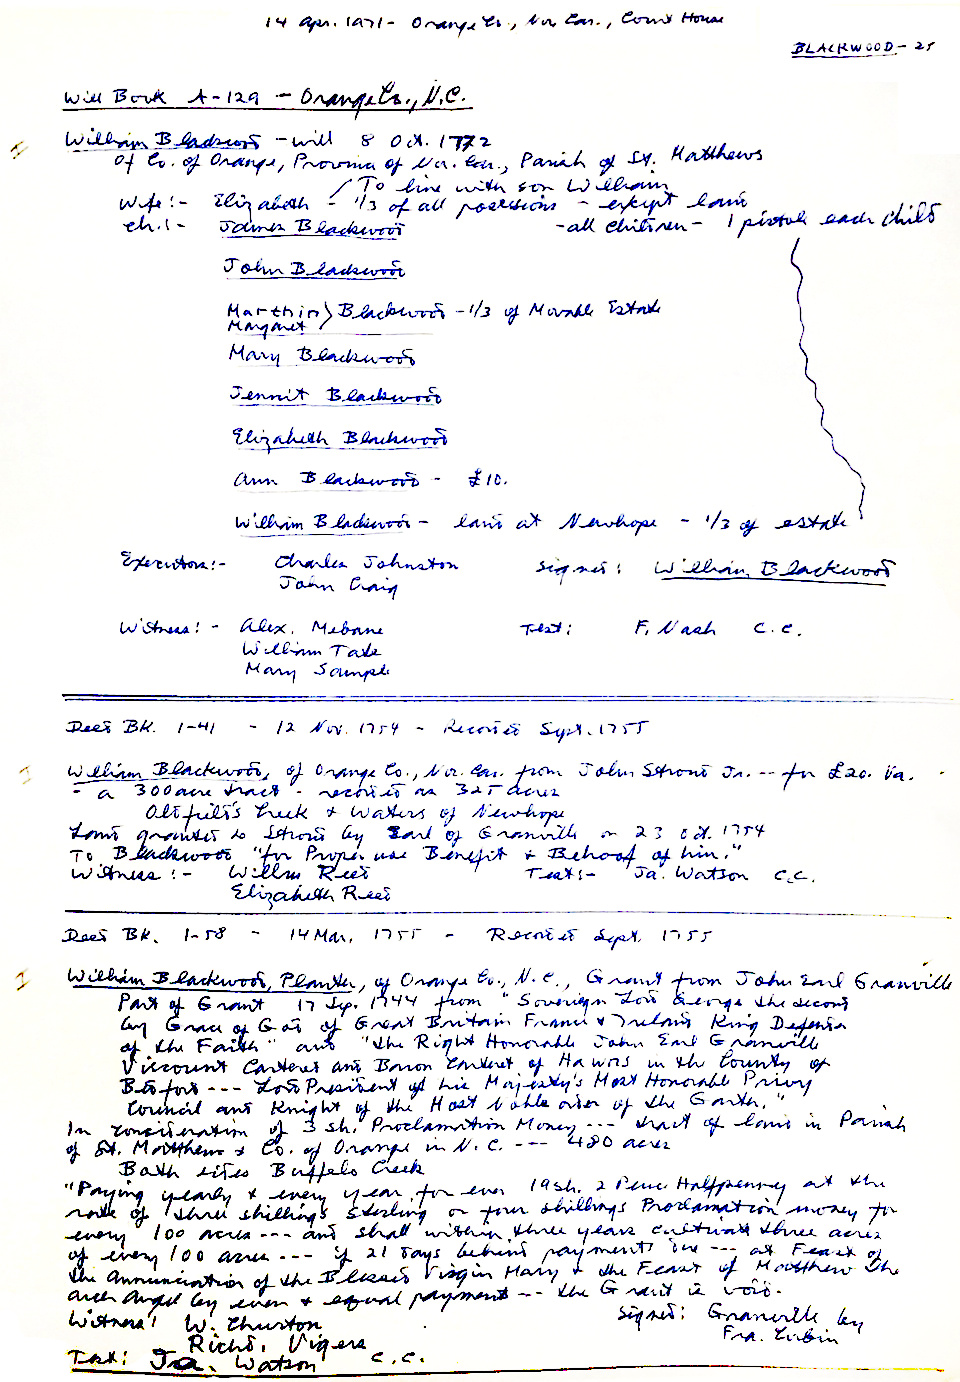 14 Apr. 1971 - Orange Co., Nor. Car., Court House
BLACKWOOD - 25
Will Book A-129 - Orange Co., N.C.
William Blackwood - will 8 Oct. 1772
Of Co. of Orange, Province of Nor. Car., Parish of St. Matthews
To live with son William
Wife:- Elizabeth - 1/3 of all possessions - except land
ch.:- James Blackwood - all children - 1 pistole each child
John Blackwood
Marthin } Blackwood - 1/3 of Movable Estate
Margaret
Mary Blackwood
Jennit Blackwood
Elizabeth Blackwood
Ann Blackwood - £10.
William Blackwood - land at Newhope - 1/3 of estate
Executors:- Charles Johnston signed: William Blackwood
John Craig
Witness:- Alex. Mebane Test: F. Nash C.C.
William Tate
Mary Sample
Deed BK. 1-41 - 12 Nov. 1754 - Recorded Sept. 1755
William Blackwood, of Orange Co., Nor. Car. from John Stroud Jr. -- for £20. Va.
- a 300 acre tract - recorded as 325 acres
Oldfield's Creek & Waters of Newhope
Land granted to Stroud by Earl of Granville on 23 Oct. 1754
To Blackwood "for Proper use Benefit & Behoof of him."
Witness:- Willm Reed Test:- Ja. Watson C.C.
Elizabeth Reed
Deed BK. 1-58 - 14 Mar. 1755 - Recorded Sept. 1755
William Blackwood, Planter, of Orange Co., N.C., Grant from John Earl Granville
Part of Grant 17 Sep. 1744 from "Sovereign Lord George the second
by Grace of God of Great Britain France & Ireland King Defender
of the Faith" and "the Right Honorable John Earl Granville
Viscount Carteret and Baron Carteret of Hawns in the County of
Bedford --- Lord President of his Majesty's Most Honorable Privy
Council and Knight of the Most Noble order of the Garth."
In consideration of 3 sh. Proclamation Money --- tract of land in Parish
of St. Matthews & Co. of Orange in N.C. --- 480 acres
Both sides Buffelo Creek
"Paying yearly & every year for ever 19 sh. 2 Pence Halfpenny at the
rate of three shillings sterling or four shillings Proclamation money for
every 100 acres --- and shall within three years cultivate three acres
of every 100 acres --- if 21 days behind payments due --- at Feast of
the Annunciation of the Blessed Virgin Mary & the Feast of Matthew the
arch Angel by even & equal payments -- the Grant is void.
Witness: W. Churton signed: Granville by
Richd. Vigers Fra. Corbin
Test: Ja. Watson C.C.